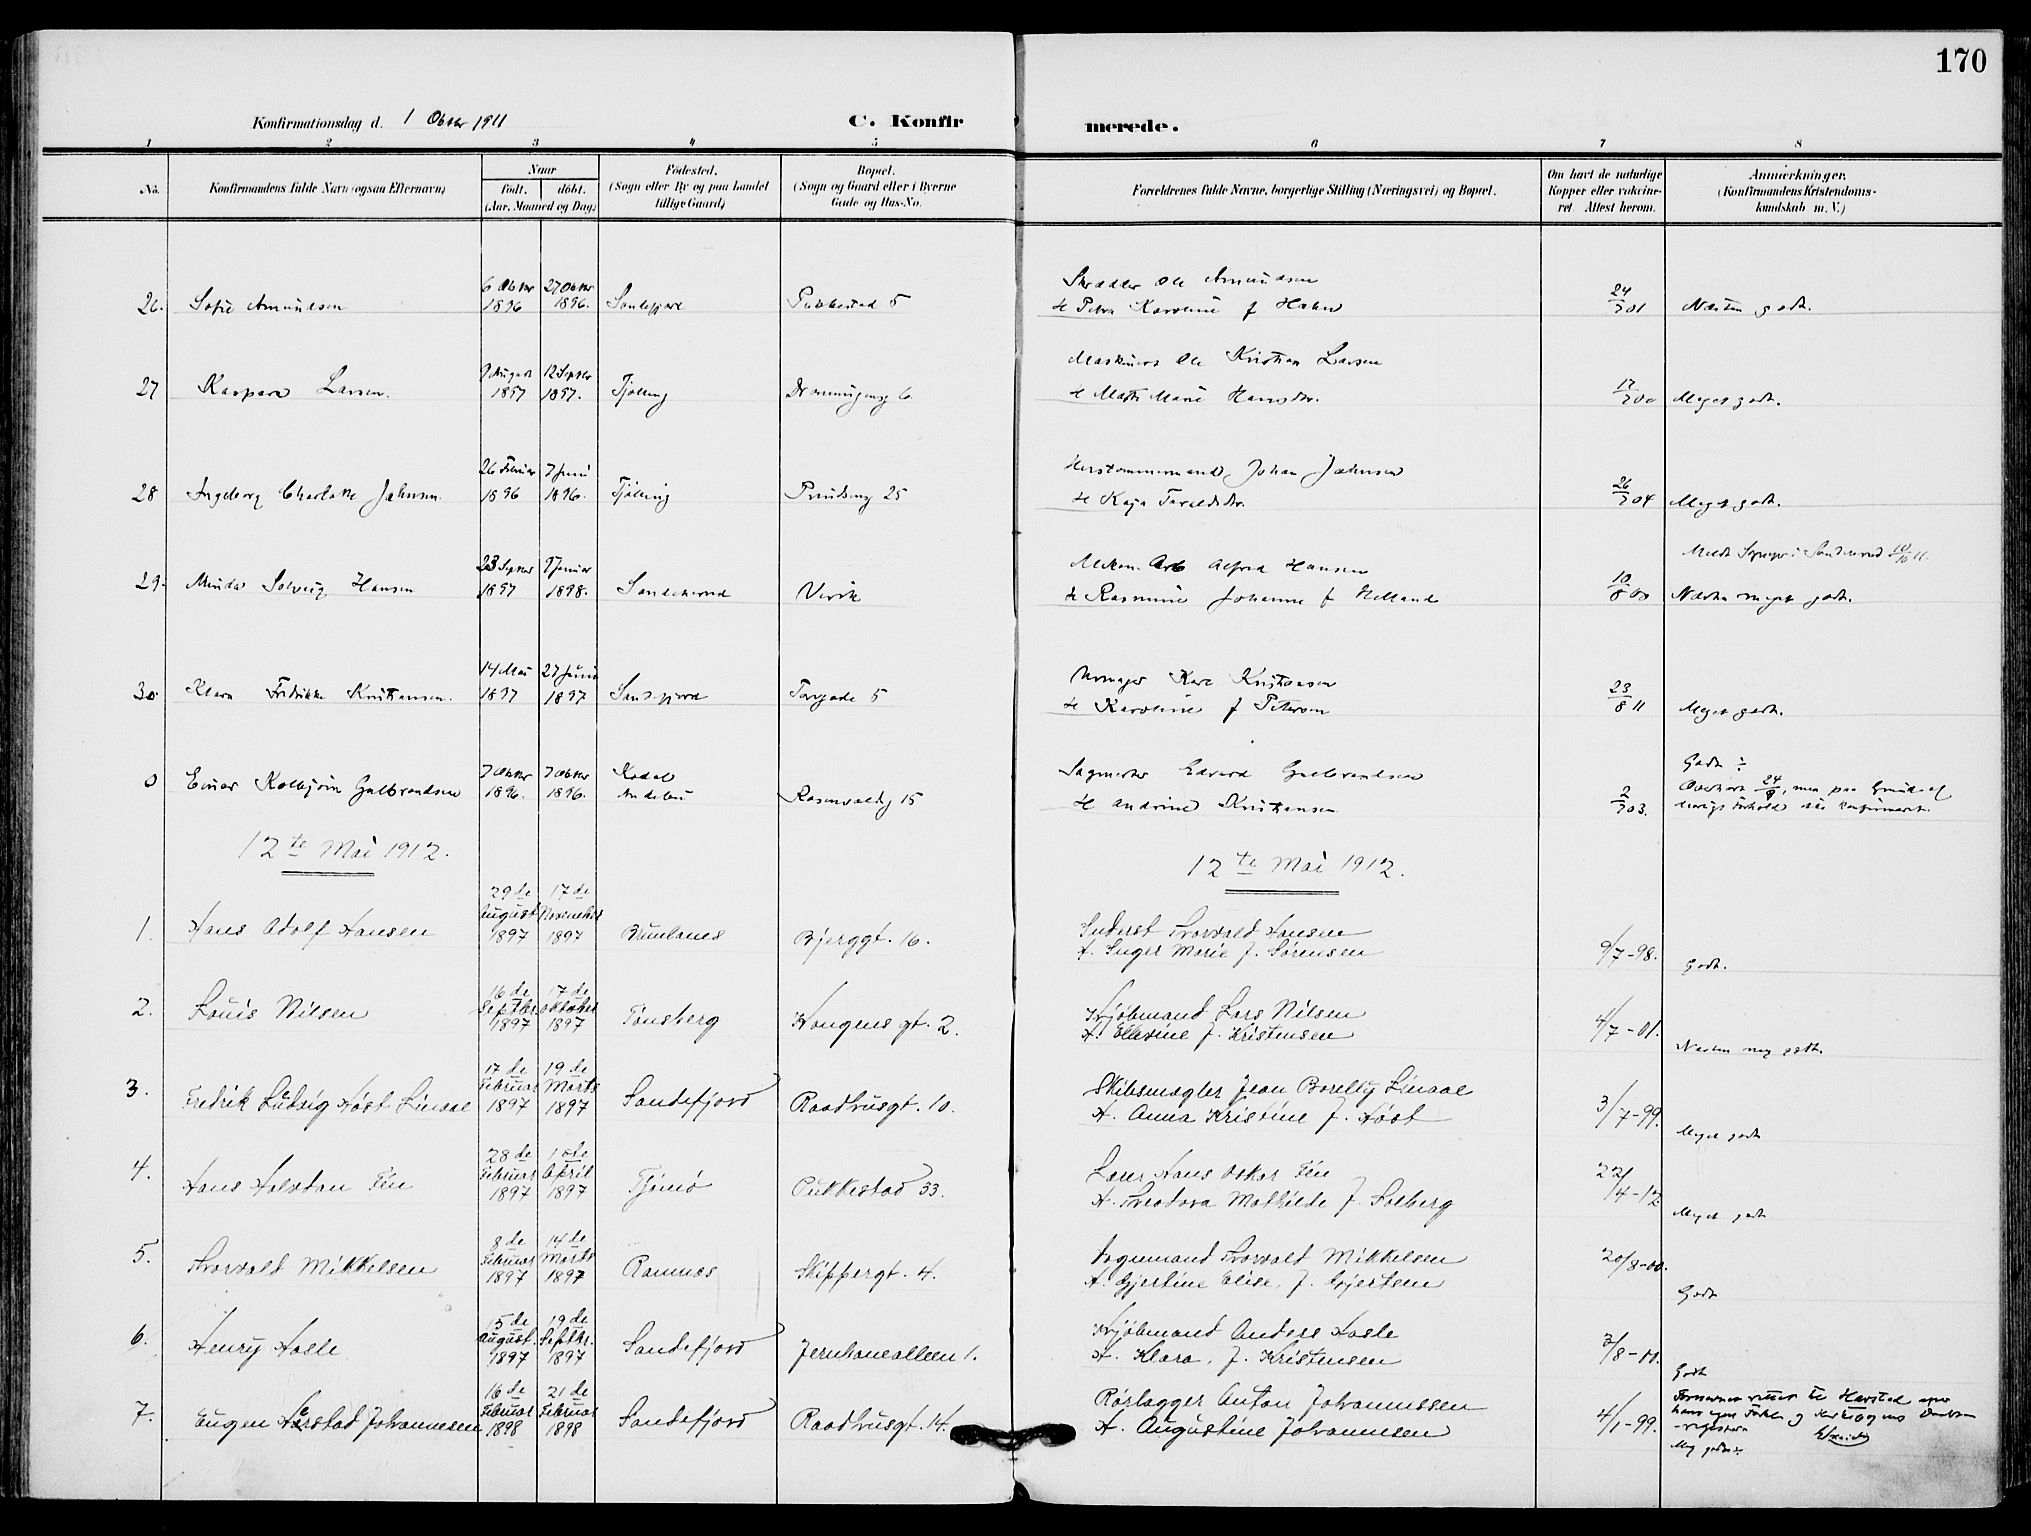 170
Konfirmationsdag d. 1 Oktbr 1911
C. Konfirmerede.
1 2 3 4 5 6 7 8
No.
Konfirmandens fulde Navn (ogsaa Efternavn)
Naar
født. døbt.
(Aar, Maaned og Dag)
Fødested.
(Sogn eller By og paa Landet
tillige Gaard)
Bopæl.
(Sogn og Gaard eller i Byerne
Gade og Hus-No.
Forældrenes fulde Navne, borgerlige Stilling (Næringsvei) og Bopæl.
Om havt de naturlige
Kopper eller vakcine-
ret Attest herom.
Anmærkninger.
(Konfirmandens Kristendoms-
kundskab m. V.)
6 Oktbr 27 Oktbr Skrædder Ole Amundsen
26. Sofie Amundsen 1896 1896. Sandefjord Pukkestad 5 & Petra Karoline f Hahn 24/7 01 Næsten godt.
7 August 12 Septbr Maskinist Ole Kristian Larsen
27 Kaspara Larsen. 1897 1897. Tjølling Dronningensg 6. & Mathi Marie Hansdtr. 17/7 00 Meget godt.
26 Februar 7 Juni Johan Johnsen
28 Ingeborg Charlotte Johnsen. 1896 1896. Tjølling Prindsensg 25 & Kaja 26/7 04 Meget godt.
23 Septbr 9 Januar Mekan. Arb Alfred Hansen Meldt Sogne i Sandeherred 10/10 11.
29. Minda Solveig Hansen 1897 1898. Sandeherred Virik & Rasmine Johanne f Helland 10/8 00 Næsten meget godt.
14 Mai 27 Juni Urmager Karl Kristiansen
30 Klara Fredrikke Kristiansen. 1897 1897 Sandefjord Torvgade 5 & Karoline f Petersen 23/8 11 Meget godt.
7 Oktbr 7 Oktbr Kodal Sagmester Edvard Gulbrandsen Godt ÷
0 Einar Kolbjørn Gulbrandsen 1896. 1896. Andebu Rosenvoldg 15 & Andrine Kristiansen 2/7 03. Overhørt 24/9, men paa Grund af
Forhold ikke konfirmeret.
12te Mai 1912.
12te Mai 1912.
29de August 17de November
1. Hans Adolf Hansen 1897 1897 Brunlanes Bjerggt. 16. Thorvald Hansen
& Inger Marie f. Sørensen 9/7-98. Godt.
16de Septbr. 17de Oktober
2. Louis Nilsen 1897 1897 Tønsberg Kongensgt. 2. Kjøbmand Lars Nilsen
& Elevine f. Kristensen 4/7-01. Næsten meg godt.
17de Februar 19de Marts
3. Fredrik Ludvig Høst Linaae 1897 1897 Sandefjord Raadhusgt. 10. Skibsmægler Jean Borelly Linaae
& Anna Kristine f. Høst 3/7-99. Meget godt
28de Februar 10de April
4. Hans Halvdan Fén 1897 1897 Tjømø Pukkestad 33. Hans Oskar Fén
& Theodora Mathilde f. Solberg 22/4-12 Meget godt
8de Februar 14de Marts
5. Thorvald Mikkelsen 1897 1897 Ramnæs Skippergt. 4. Vognmand Thorvald Mikkelsen
& Gjertine Elise, f. Gjertsen 20/8-00. Godt
15de August. 19de Septbr.
6. Henry Hasle 1897 1897 Sandefjord Jernbanealleen 1. Kjøbmand Anders Hasle
& Klara, f. Kristensen 3/8-11. Godt
16de Februar 21de Februar
7. Eugen Harstad Johannessen 1898 1898 Sandefjord Raadhusgt. 14. Rørlægger Anton Johannessen
& Augustine Johannesen 4/1-99. Fornavnet rettet til Harstad efter
hans egen og Kirkebogens
-registret
Meg godt.